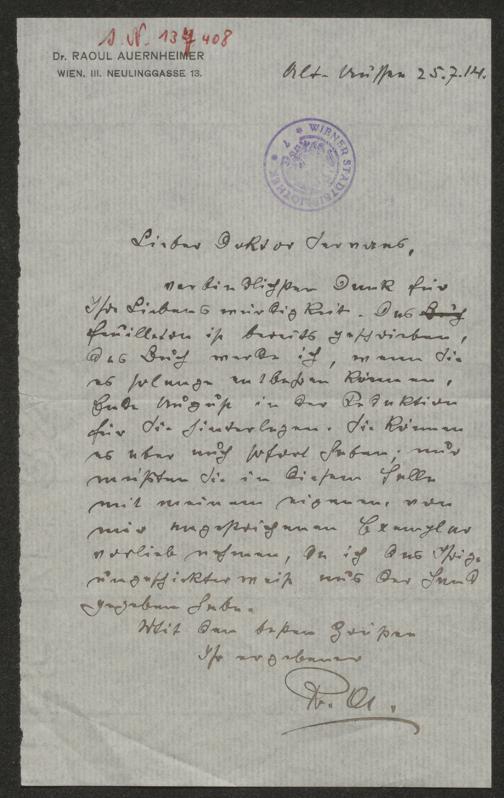 I. N. 137408
Dr. RAOUL AUERNHEIMER
WIEN, III. NEULINGGASSE 13.
Alt-Aussee 25.7.14.
WIENER STADTBIBLIOTHEK
Lieber Doktor Servaes,
verbindlichsten Dank für
Ihre Liebenswürdigkeit. Das Buch
Feuilleton ist bereits geschrieben,
das Buch werde ich, wenn Sie
es solange entbehren können,
Ende August in der Redaktion
für Sie hinterlegen. Sie können
es aber auch sofort haben; nur
müßten Sie in diesem Falle
mit meinem eigenen, von
mir angestrichenen Exemplar
vorlieb nehmen, da ich das Ihrige
ungeschickterweise aus der Hand
gegeben habe.
Mit den besten Grüßen
Ihr ergebener
Dr. A.